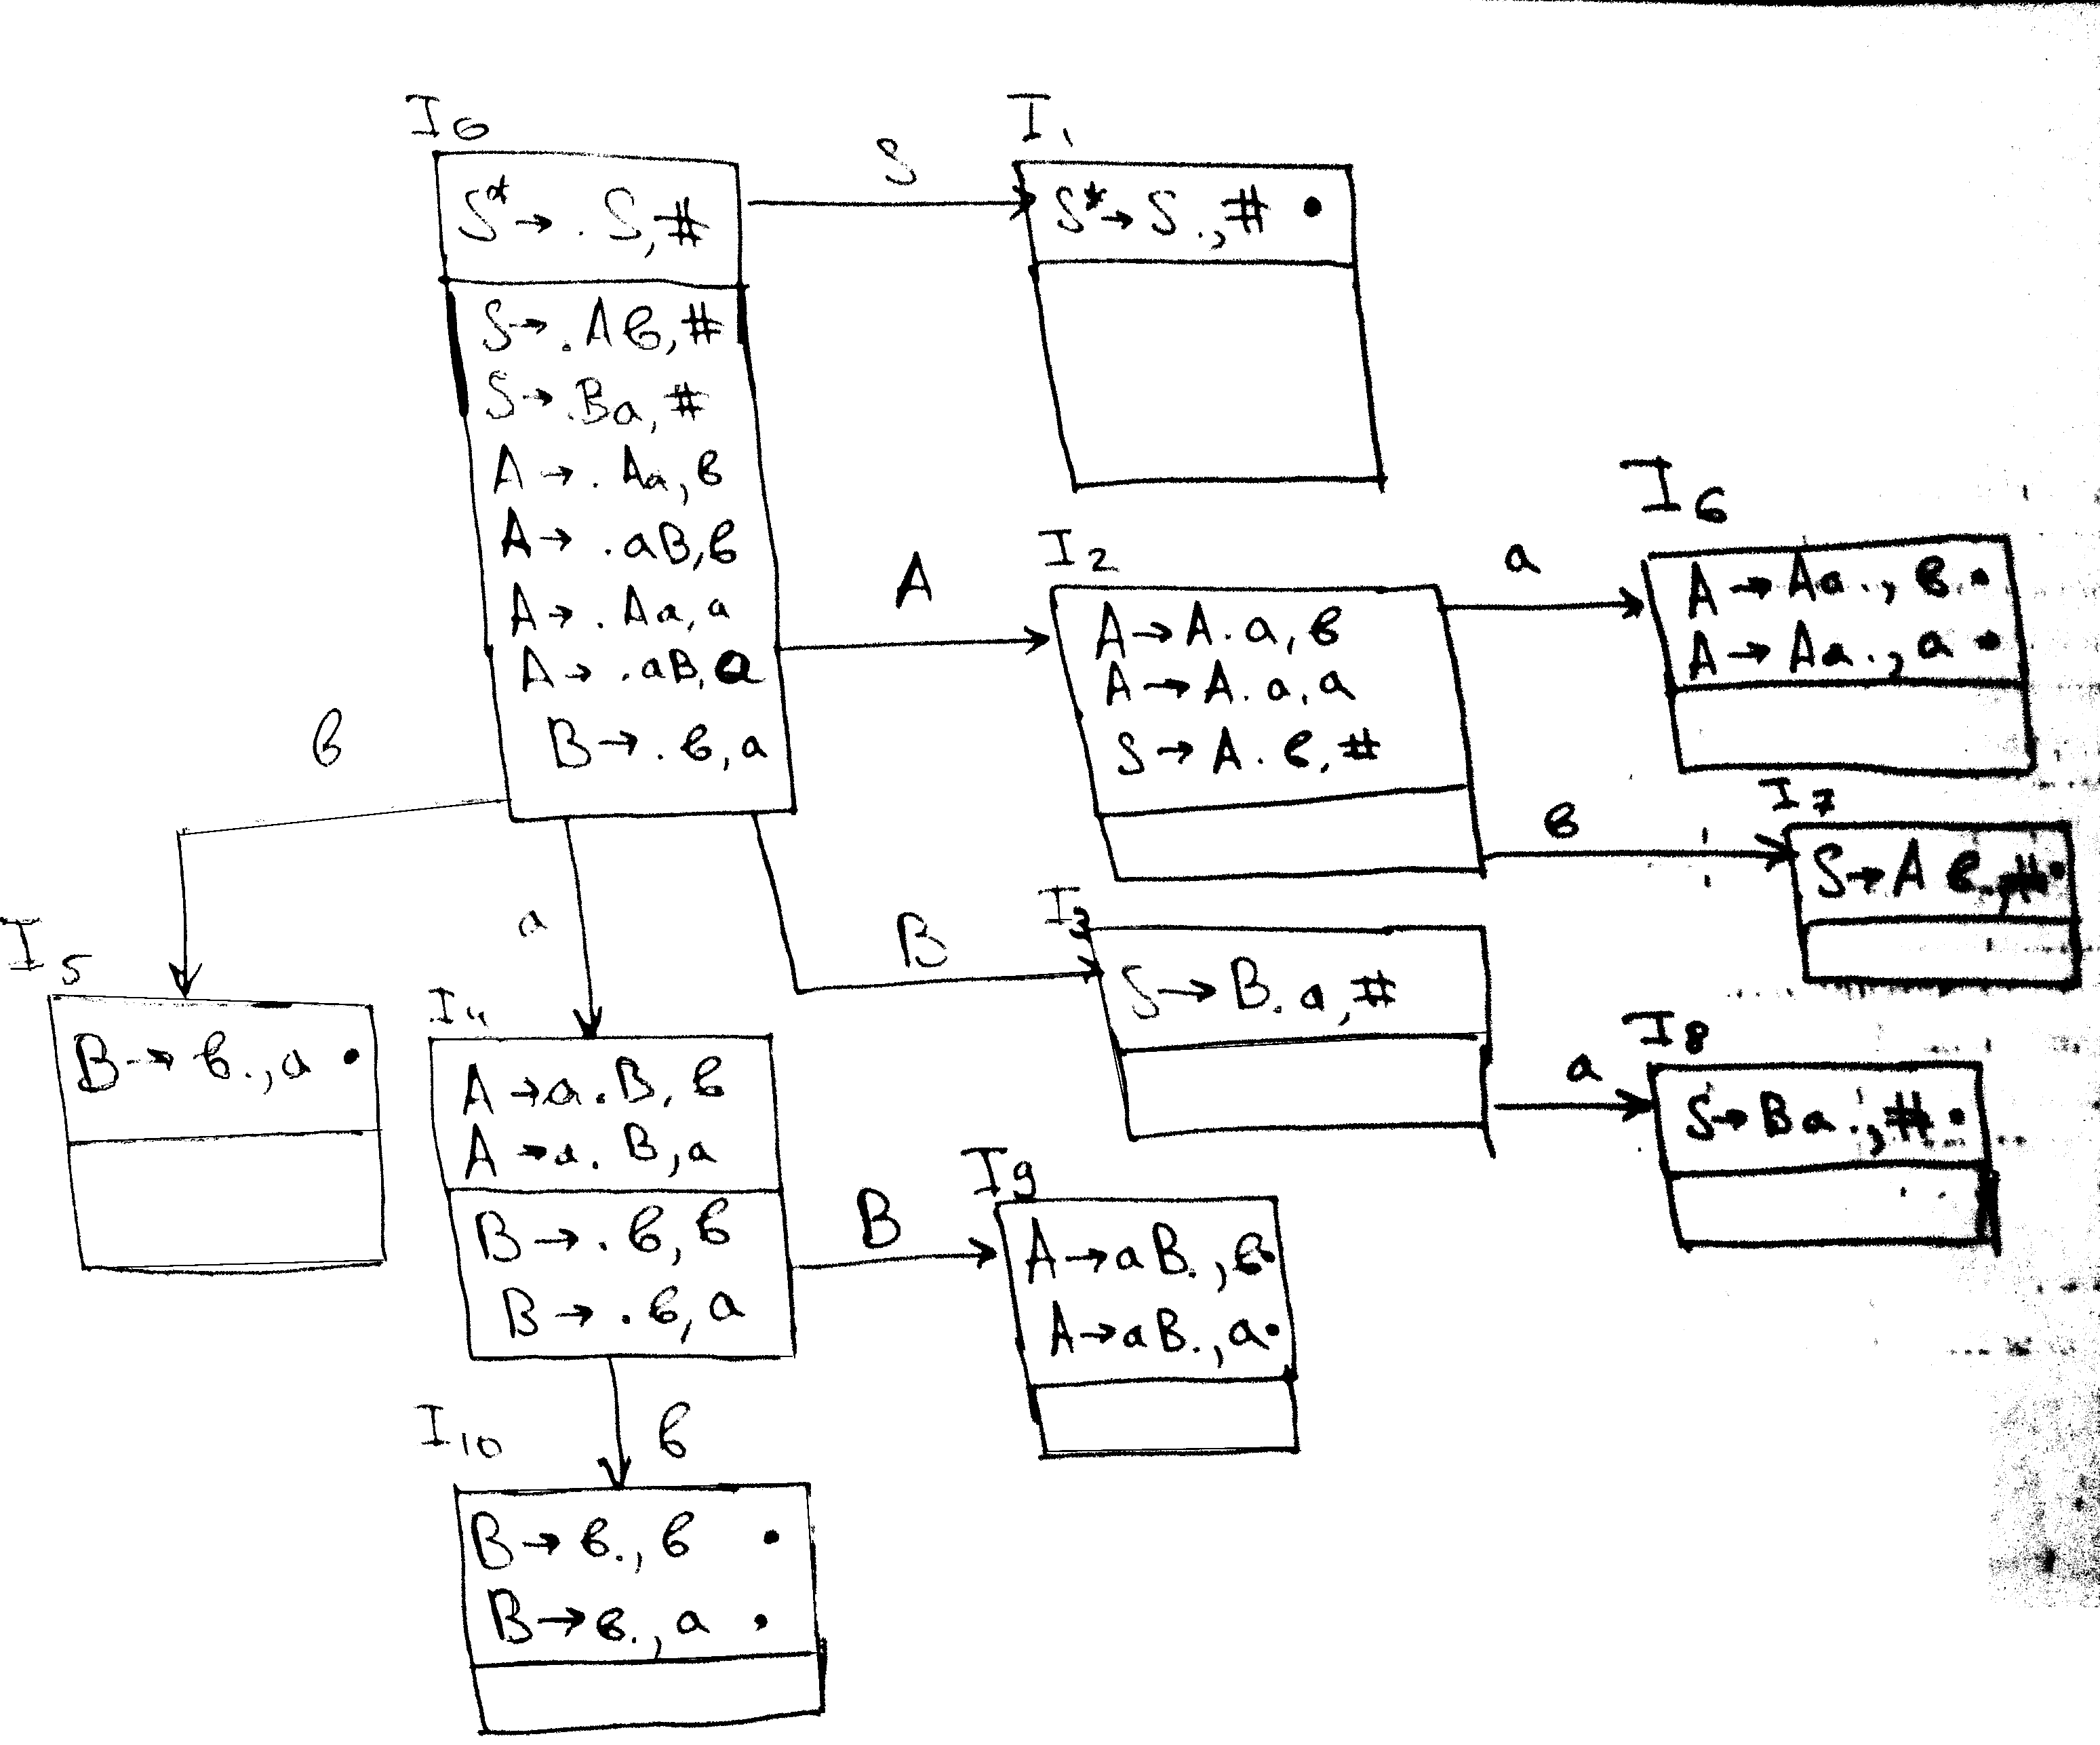 I₀
S* → . S, #
S → . Aв, #
S → . Ba, #
A → . Aa, в
A → . aB, в
A → . Aa, a
A → . aB, a
B → . в, a
S
I₁
S* → S ., # •
A
I₂
A → A . a, в
A → A . a, a
S → A . в, #
a
I₆
A → Aa ., в •
A → Aa ., a •
в
I₇
S → Aв ., # •
B
I₃
S → B . a, #
a
I₈
S → Ba ., # •
в
I₅
B → в ., a •
a
I₄
A → a . B, в
A → a . B, a
B → . в, в
B → . в, a
B
I₉
A → aB ., в •
A → aB ., a •
в
I₁₀
B → в ., в •
B → в ., a •